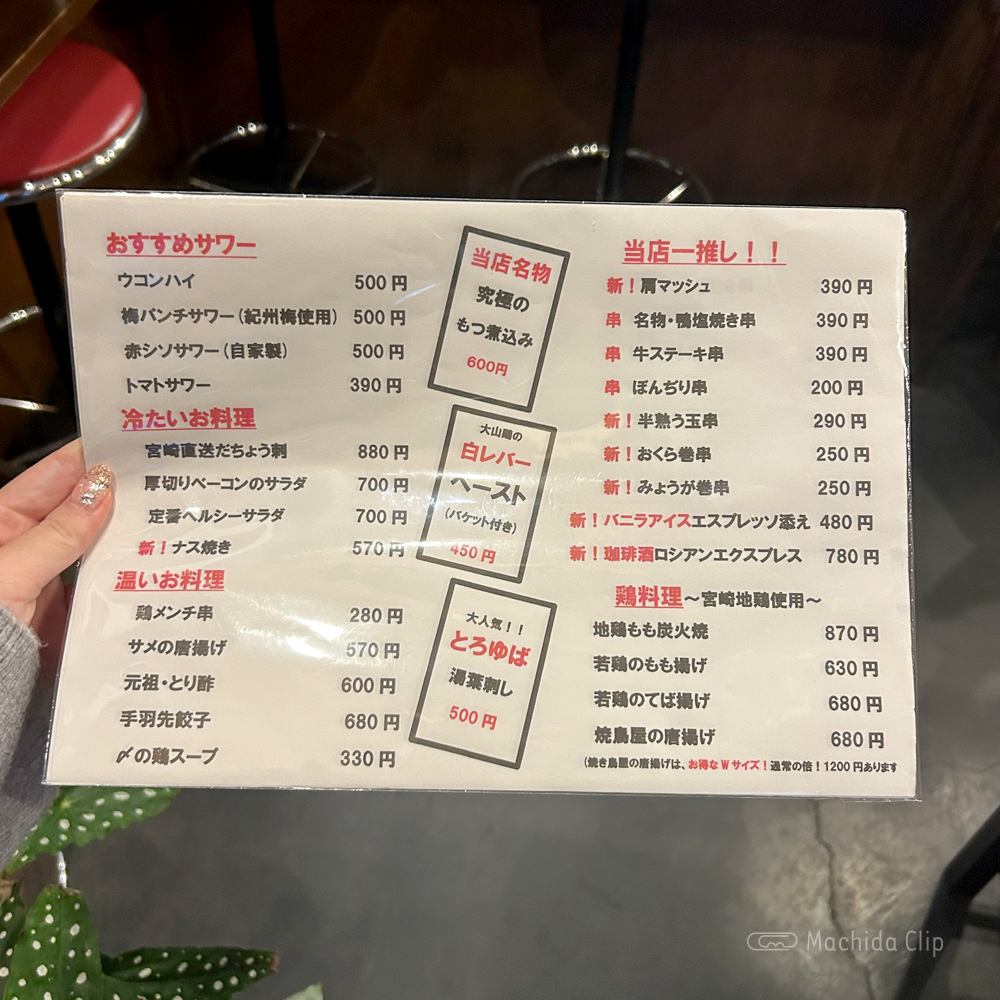 おすすめサワー
ウコンハイ 500円
梅パンチサワー(紀州梅使用) 500円
赤シソサワー(自家製) 500円
トマトサワー 390円
冷たいお料理
宮崎直送だちょう刺 880円
厚切りベーコンのサラダ 700円
定番ヘルシーサラダ 700円
新!ナス焼き 570円
温いお料理
鶏メンチ串 280円
サメの唐揚げ 570円
元祖・とり酢 600円
手羽先餃子 680円
〆の鶏スープ 330円
当店名物
究極の
もつ煮込み
600円
大山鶏の
白レバー
ペースト
(バケット付き)
450円
大人気!!
とろゆば
湯葉刺し
500円
当店一推し!!
新!肩マッシュ 390円
串 名物・鴨塩焼き串 390円
串 牛ステーキ串 390円
串 ぼんぢり串 200円
新!半熟う玉串 290円
新!おくら巻串 250円
新!みょうが巻串 250円
新!バニラアイスエスプレッソ添え 480円
新!珈琲酒ロシアンエクスプレス 780円
鶏料理~宮崎地鶏使用~
地鶏もも炭火焼 870円
若鶏のもも揚げ 630円
若鶏のてば揚げ 680円
焼鳥屋の唐揚げ 680円
(焼き鳥屋の唐揚げは、お得なWサイズ!通常の倍!1200円あります
Machida Clip